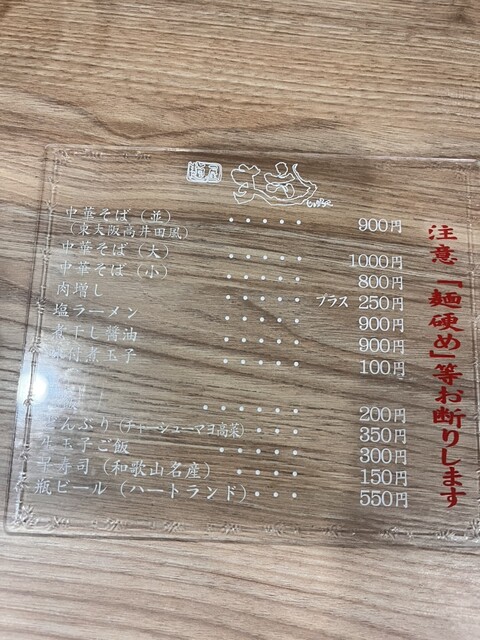 麺屋
中華そば（並） ・・・・・ 900円
（東大阪高井田風）
中華そば（大） ・・・・・ 1000円
中華そば（小） ・・・・・ 800円
肉増し ・・・・・ プラス 250円
塩ラーメン ・・・・・ 900円
煮干し醤油 ・・・・・ 900円
味付煮玉子 ・・・・・ 100円
・・・・・・ 200円
んぶり（チャーシューマヨ高菜）・・・ 350円
生玉子ご飯 ・・・・・・ 300円
早寿司（和歌山名産） ・・・・ 150円
瓶ビール（ハートランド）・・・ 550円
注意「麺硬め」等お断りします